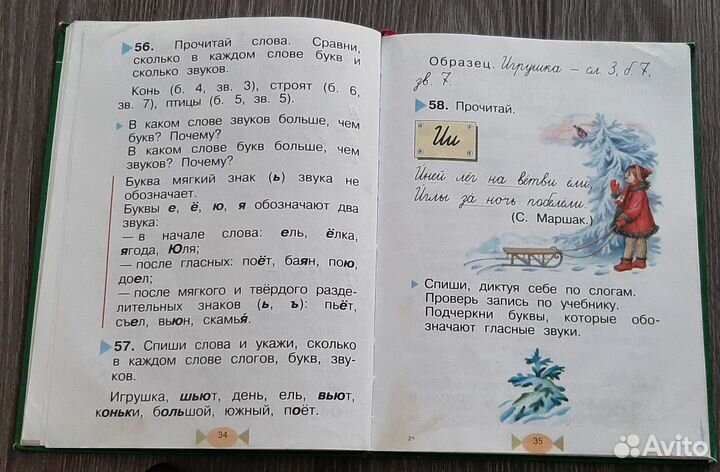 56. Прочитай слова. Сравни,
сколько в каждом слове букв и
сколько звуков.
Конь (б. 4, зв. 3), строят (б. 6,
зв. 7), птицы (б. 5, зв. 5).
В каком слове звуков больше, чем
букв? Почему?
В каком слове букв больше, чем
звуков? Почему?
Буква мягкий знак (ь) звука не
обозначает.
Буквы е, ё, ю, я обозначают два
звука:
— в начале слова: ель, ёлка,
ягода, Юля;
— после гласных: поёт, баян, пою,
доел;
— после мягкого и твёрдого разде-
лительных знаков (ь, ъ): пьёт,
съел, вьюн, скамья.
57. Спиши слова и укажи, сколько
в каждом слове слогов, букв, зву-
ков.
Игрушка, шьют, день, ель, вьют,
коньки, большой, южный, поёт.
34
Образец. Игрушка — сл. 3, б. 7,
зв. 7.
58. Прочитай.
Ии
Иней лёг на ветви ели,
Иглы за ночь побелели.
(С. Маршак.)
Спиши, диктуя себе по слогам.
Проверь запись по учебнику.
Подчеркни буквы, которые обо-
значают гласные звуки.
2*
35
Avito